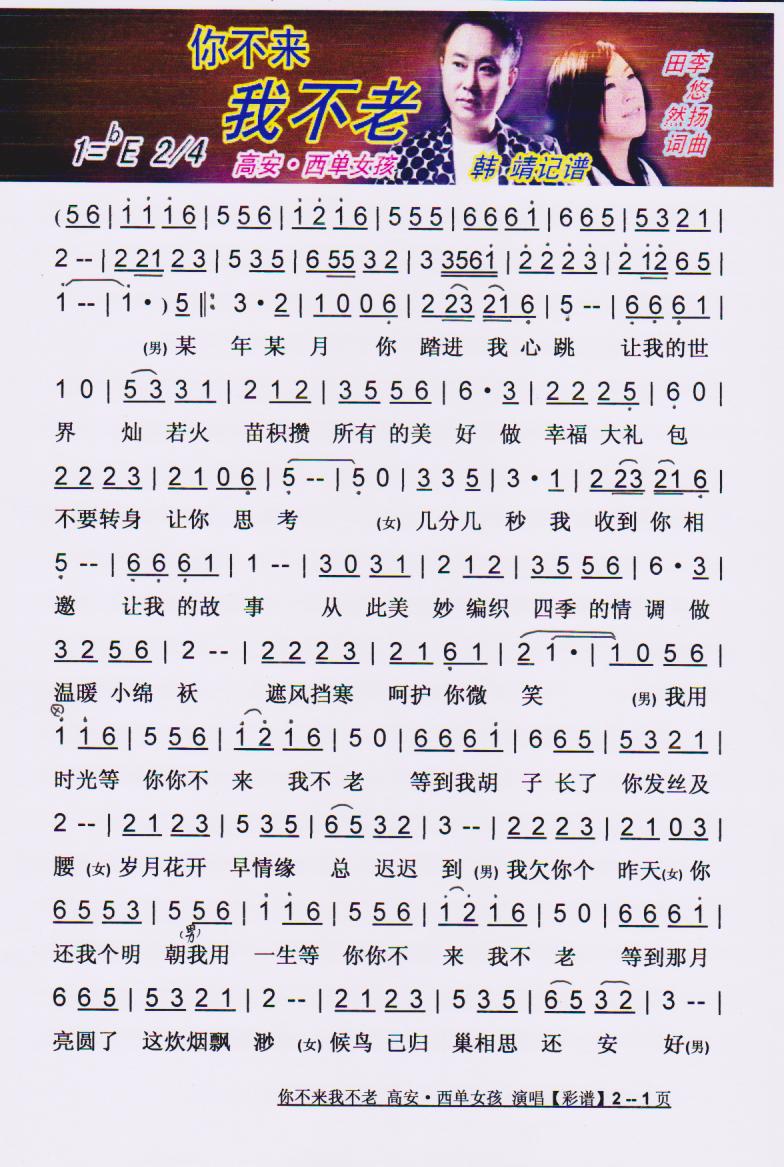 你不来
我不老
1=ᵇE 2/4
高安·西单女孩
韩 靖记谱
田悠然词
李扬曲
(5 6 | 1 1 1 6 | 5 5 6 | 1 2 1 6 | 5 5 5 | 6 6 6 1 | 6 6 5 | 5 3 2 1 |
2 -- | 2 2 1 2 3 | 5 3 5 | 6 5 5 3 2 | 3 3 5 6 1 | 2 2 2 3 | 2 1 2 6 5 |
1 -- | 1 · ) 5 ‖: 3 · 2 | 1 0 0 6 | 2 2 3 2 1 6 | 5 -- | 6 6 6 1 |
(男) 某 年 某 月 你 踏进 我 心 跳 让我 的 世
1 0 | 5 3 3 3 1 | 2 1 2 | 3 5 5 6 | 6 · 3 | 2 2 2 5 | 6 0 |
界 灿 若火 苗积攒 所有 的美 好 做 幸福 大礼 包
2 2 2 3 | 2 1 0 6 | 5 -- | 5 0 | 3 3 5 | 3 · 1 | 2 2 3 2 1 6 |
不要转身 让你 思 考 (女) 几分几 秒 我 收到 你 相
5 -- | 6 6 6 1 | 1 -- | 3 0 3 1 | 2 1 2 | 3 5 5 6 | 6 · 3 |
邀 让我 的故 事 从 此美 妙 编织 四季 的情 调 做
3 2 5 6 | 2 -- | 2 2 2 3 | 2 1 6 1 | 2 1 · | 1 0 5 6 |
温暖 小绵 袄 遮风挡寒 呵护 你微 笑 (男) 我用
1 1 6 | 5 5 6 | 1 2 1 6 | 5 0 | 6 6 6 1 | 6 6 5 | 5 3 2 1 |
时光等 你你不 来 我不 老 等到我胡 子 长了 你发丝及
2 -- | 2 1 2 3 | 5 3 5 | 6 5 3 2 | 3 -- | 2 2 2 3 | 2 1 0 3 |
腰 (女) 岁月花开 早情缘 总 迟迟 到 (男) 我欠你个 昨天(女) 你
6 5 5 3 | 5 5 6 | 1 1 6 | 5 5 6 | 1 2 1 6 | 5 0 | 6 6 6 1 |
(男)
还我个明 朝我用 一生等 你你不 来 我不 老 等到那月
6 6 5 | 5 3 2 1 | 2 -- | 2 1 2 3 | 5 3 5 | 6 5 3 2 | 3 -- |
亮圆了 这炊烟飘 渺 (女) 候鸟 已归 巢相思 还 安 好(男)
你不来我不老 高安·西单女孩 演唱【彩谱】2 -- 1 页